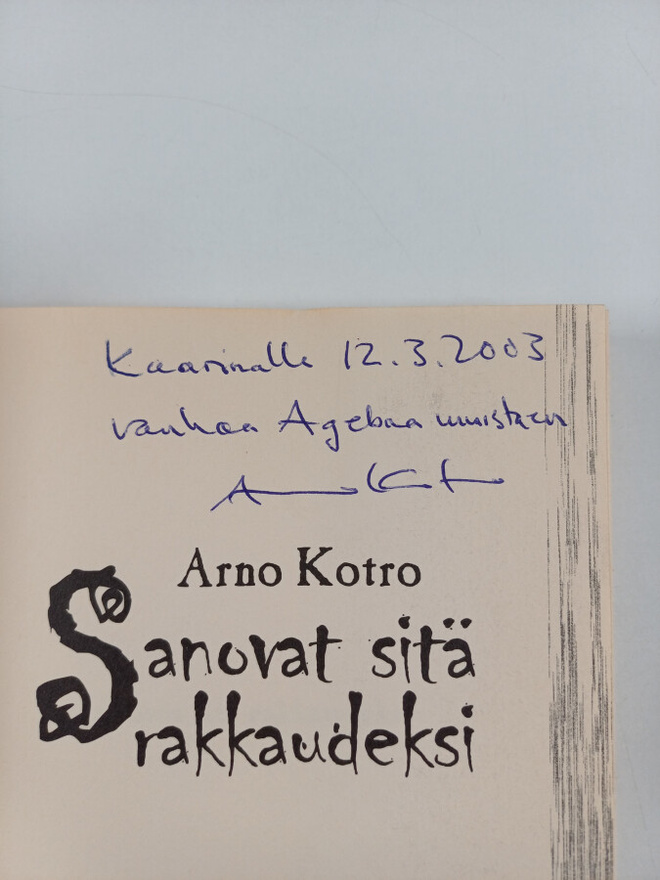 Kaarinalle 12.3.2003
vanhaa Agebaa muistaen
Arno Kotro
Sanovat sitä
rakkaudeksi